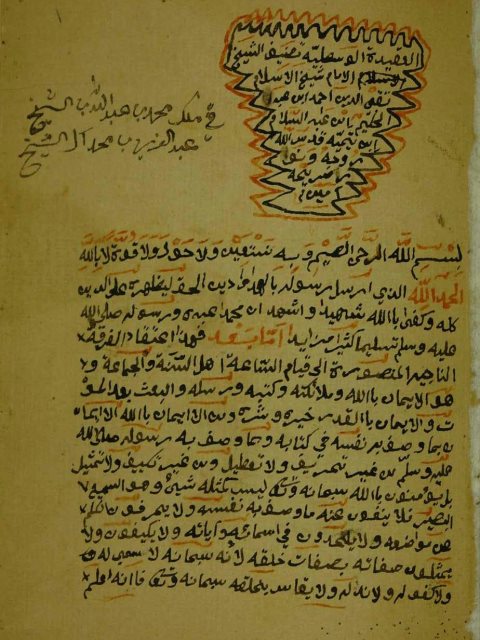 العقيدة الوسطية تصنيف الشيخ
الامام شيخ الاسلام
تقي الدين احمد ابن عبد
الحليم ابن عبد السلام
ابن تيمية قدس الله
روحه ونور
ضريحه
امين
في ملك محمد بن عبد اللطيف الشيخ
عبد العزيز بن محمد آل الشيخ
بسم الله الرحمن الرحيم وبه نستعين ولا حول ولا قوة الا بالله
الحمد الله الذي ارسل رسوله بالهدا ودين الحق ليظهره على الدين
كله وكفى با الله شهيدا واشهد ان محمدا عبده ورسوله صلى الله
عليه وسلم تسليما كثيرا مزايد اما بعد فهذا اعتقاد الفرقة
الناجية المنصورة الى قيام الساعة اهل السنة والجماعة و
هو الايمان با الله وملائكته وكتبه ورسله والبعث بعد المو
ت والايمان با القدر خيره وشره ومن الايمان با الله الايما
ن بما وصف به نفسه في كتابه وبما وصف به رسوله صلى الله
عليه وسلم من غير تحريف ولا تعطيل ومن غير تكييف ولا تمثيل
بل يؤمنون با الله سبحانه ليس كمثله شيء وهو السميع
البصير فلا ينفون عنه ما وصف به نفسه ولا يحرفون الكلم
عن مواضعه ولا يلحدون في اسمائه وآياته ولا يكيفون ولا
يمثلون صفاته بصفات خلقه لانه سبحانه لا سمي له
ولا كفو له ولا ند له ولا يقاس بخلقه سبحانه فانه اعلم